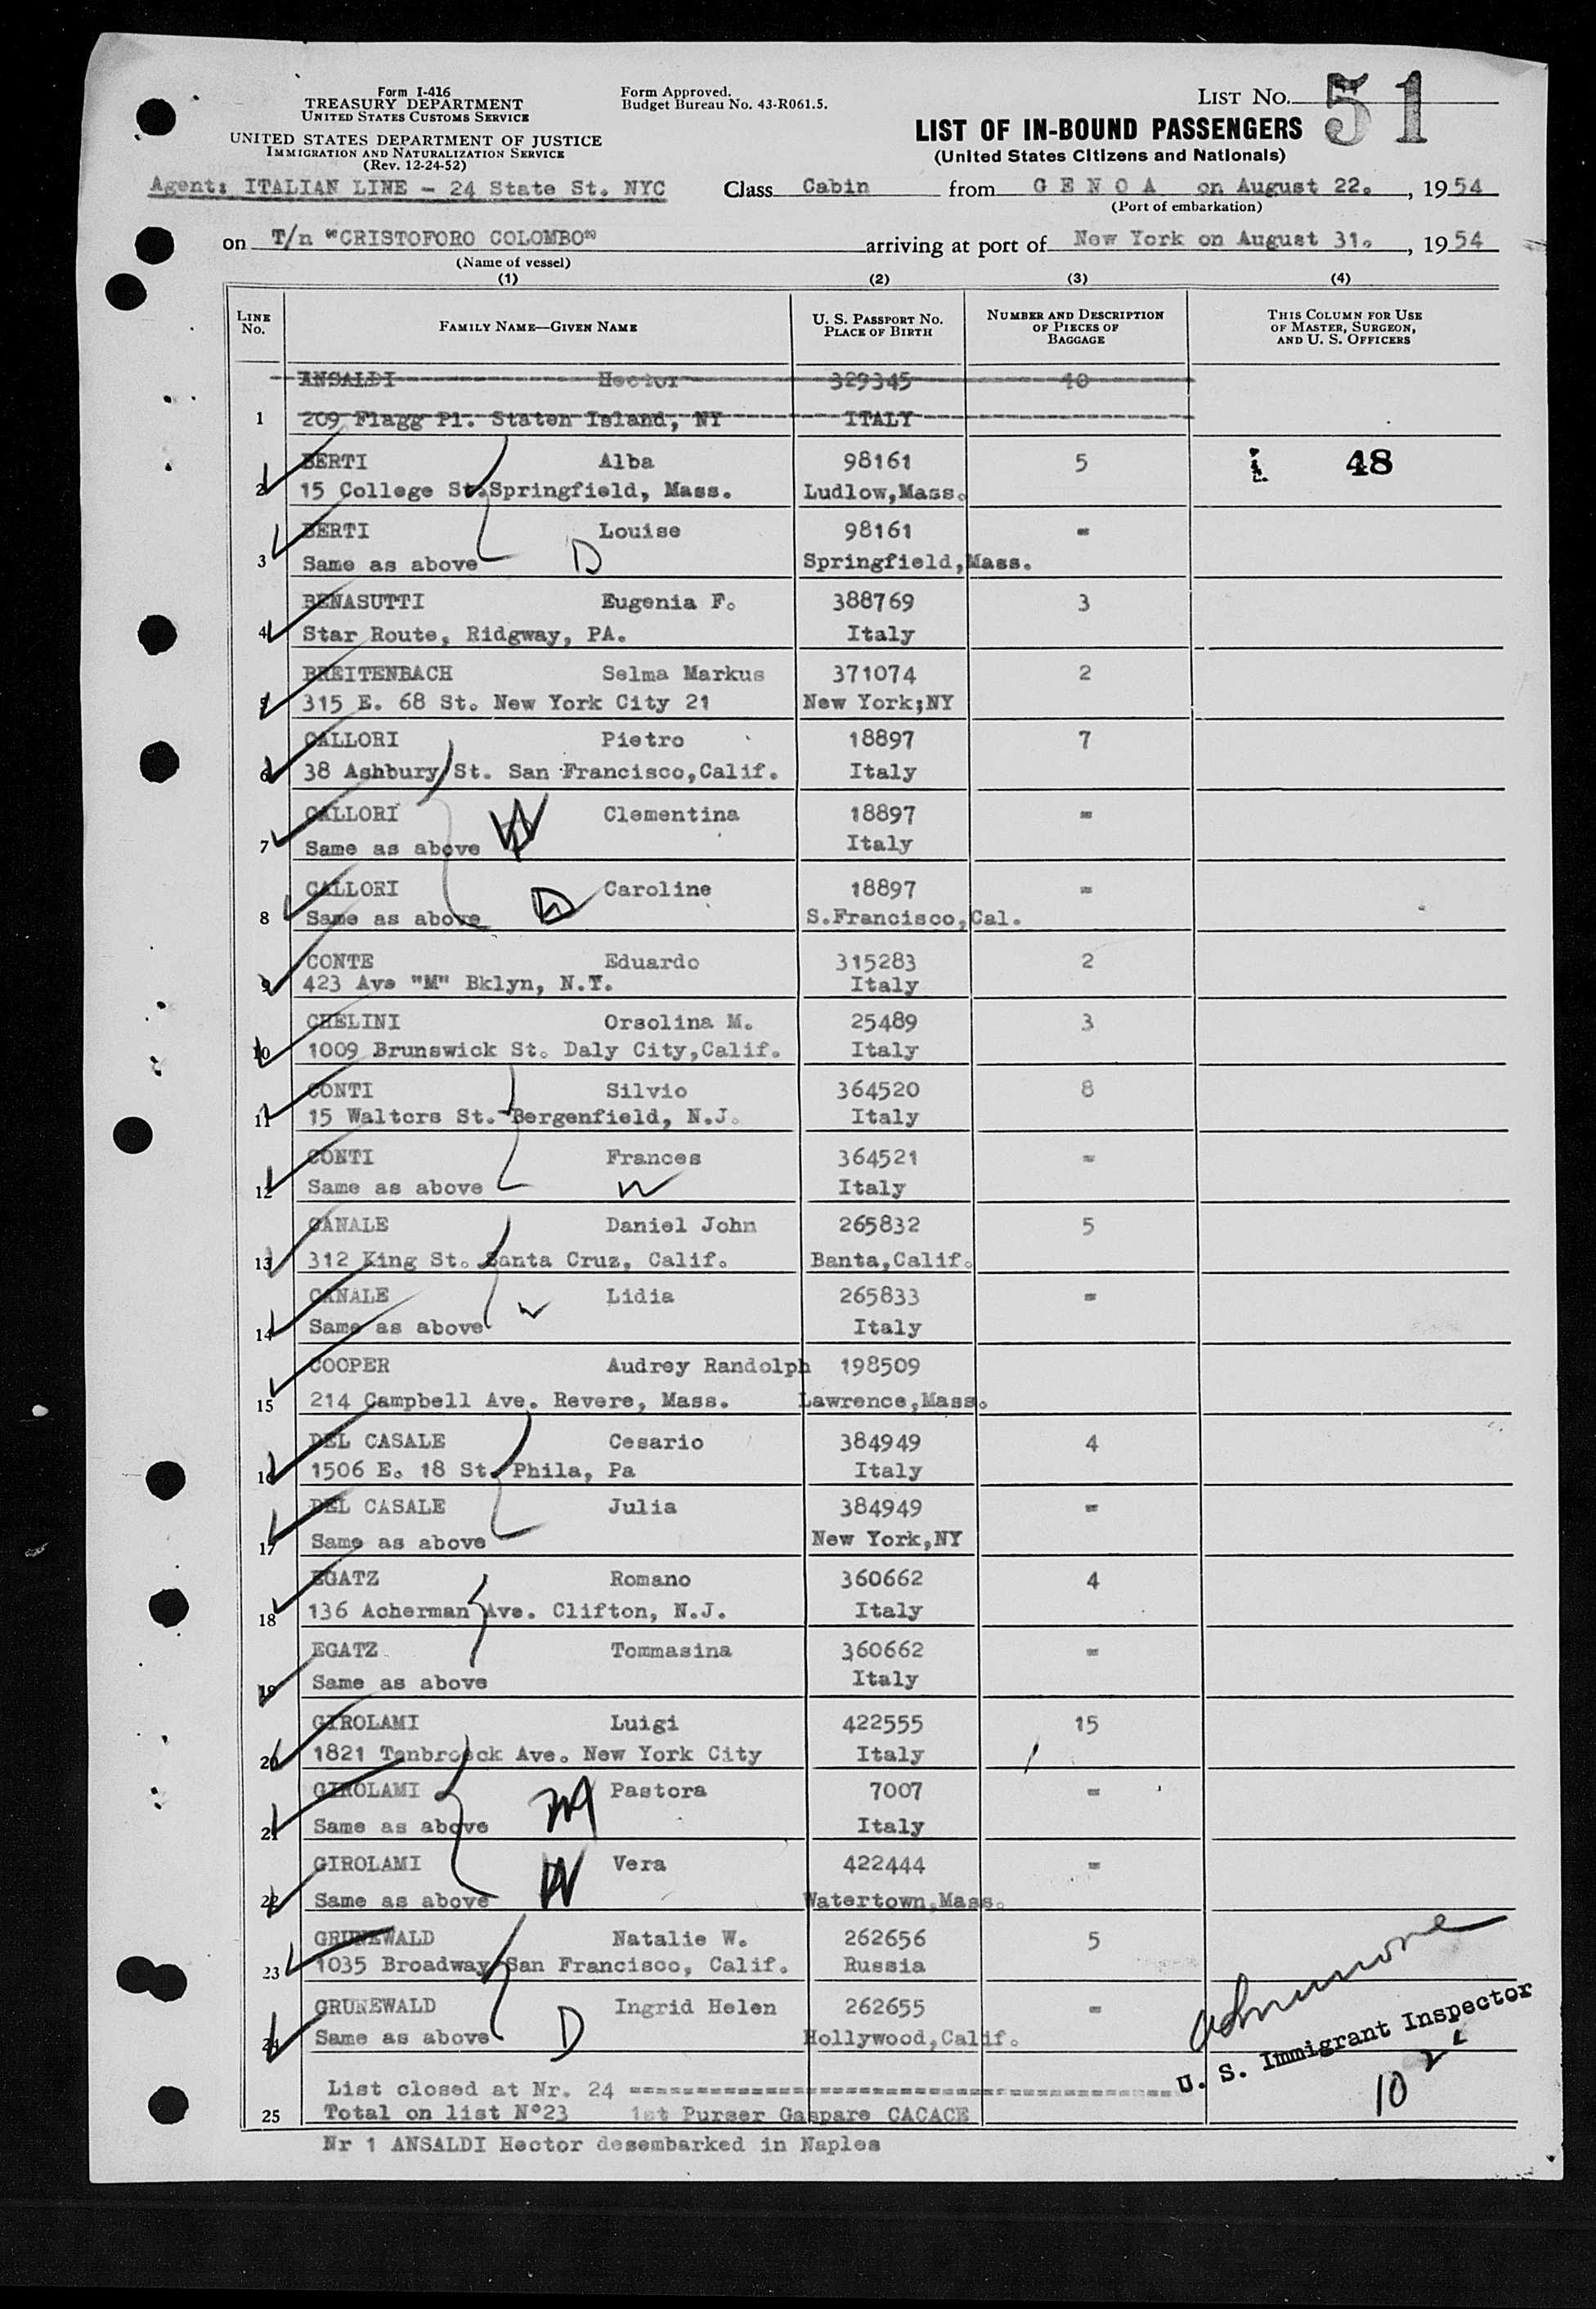 Form I-416
TREASURY DEPARTMENT
UNITED STATES CUSTOMS SERVICE
UNITED STATES DEPARTMENT OF JUSTICE
IMMIGRATION AND NATURALIZATION SERVICE
(Rev. 12-24-52)
Form Approved.
Budget Bureau No. 43-R061.5.
LIST NO. 51
LIST OF IN-BOUND PASSENGERS
(United States Citizens and Nationals)
Agent: ITALIAN LINE - 24 State St. NYC Class Cabin from G E N O A on August 22. , 1954
(Port of embarkation)
on T/n "CRISTOFORO COLOMBO" arriving at port of New York on August 31. , 1954
(Name of vessel)
(1) (2) (3) (4)
LINE No. FAMILY NAME—GIVEN NAME U. S. PASSPORT NO. PLACE OF BIRTH NUMBER AND DESCRIPTION OF PIECES OF BAGGAGE THIS COLUMN FOR USE OF MASTER, SURGEON, AND U. S. OFFICERS
ANSALDI Hector 329345 10
1 209 Flagg Pl. Staten Island, NY ITALY
BERTI Alba 98161 5 48
2 15 College St.Springfield, Mass. Ludlow,Mass.
BERTI Louise 98161 =
3 Same as above D Springfield,Mass.
BENASUTTI Eugenia F. 388769 3
4 Star Route, Ridgway, PA. Italy
BREITENBACH Selma Markus 371074 2
5 315 E. 68 St. New York City 21 New York;NY
CALLORI Pietro 18897 7
6 38 Ashbury St. San Francisco,Calif. Italy
CALLORI Clementina 18897 =
7 Same as above Italy
CALLORI Caroline 18897 =
8 Same as above S.Francisco,Cal.
CONTE Eduardo 315283 2
9 423 Ave "M" Bklyn, N.Y. Italy
CHELINI Orsolina M. 25489 3
10 1009 Brunswick St. Daly City,Calif. Italy
CONTI Silvio 364520 8
11 15 Walters St. Bergenfield, N.J. Italy
CONTI Frances 364521 =
12 Same as above W Italy
CANALE Daniel John 265832 5
13 312 King St. Santa Cruz, Calif. Banta,Calif.
CANALE Lidia 265833 =
14 Same as above W Italy
COOPER Audrey Randolph 198509
15 214 Campbell Ave. Revere, Mass. Lawrence,Mass.
DEL CASALE Cesario 384949 4
16 1506 E. 18 St. Phila, Pa Italy
DEL CASALE Julia 384949 =
17 Same as above New York,NY
EGATZ Romano 360662 4
18 136 Acherman Ave. Clifton, N.J. Italy
EGATZ Tommasina 360662 =
19 Same as above Italy
GIROLAMI Luigi 422555 15
20 1821 Tenbroeck Ave. New York City Italy
GIROLAMI Pastora 7007 =
21 Same as above Italy
GIROLAMI Vera 422444 =
22 Same as above Watertown,Mass.
GRUNEWALD Natalie W. 262656 5
23 1035 Broadway San Francisco, Calif. Russia
GRUNEWALD Ingrid Helen 262655 =
24 Same as above D Hollywood,Calif.
U. S. Immigrant Inspector
List closed at Nr. 24
25 Total on list N°23 1st Purser Gaspare CACACE
Nr 1 ANSALDI Hector desembarked in Naples